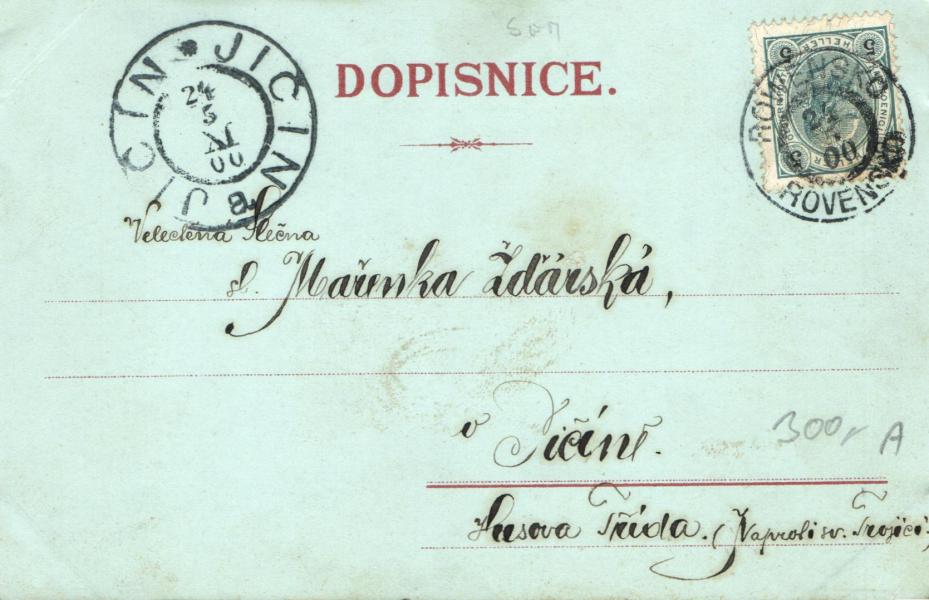 DOPISNICE.
JICIN * JICIN
24
5
XI
00
JIČÍN a
5 HELLER 5
5
ROVENSKO
24
00
ROVENSKO
Velectěná Slečna
sl. Mařenka Žďárská,
v Jičíně.
300,- A
Husova Třída. (Naproti sv. Trojici.)